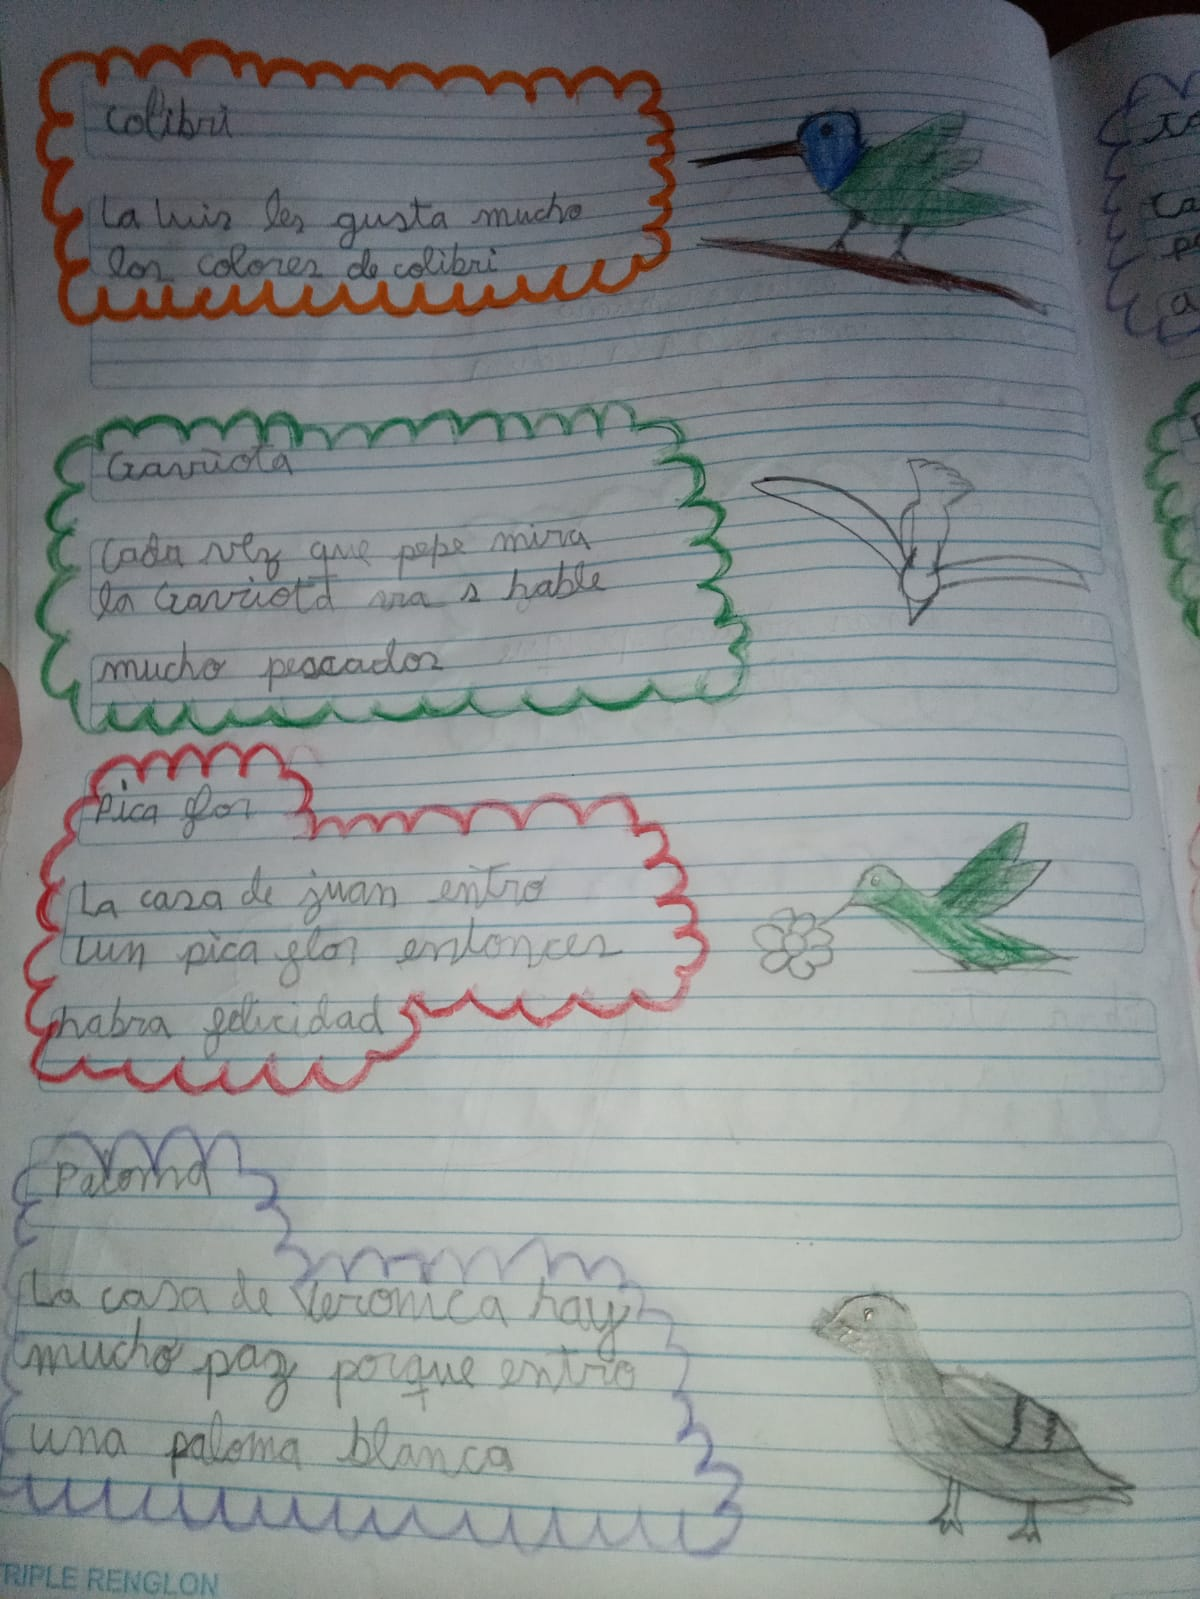 Colibri
La luis les gusta mucho
los colores de colibri
Gaviota
Cada vez que pepe mira
la Gaviota va a hable
mucho pescador
Pica flor
La casa de juan entro
un pica flor entonces
habra felicidad
Paloma
La casa de Veronica hay
mucho paz porque entro
una paloma blanca
TRIPLE RENGLON